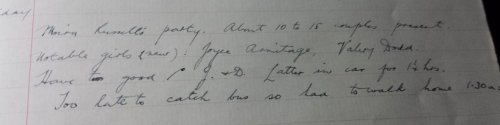 day
Moira Russells party. About 10 to 15 couples present.
Notable girls (new): Joyce Armitage, Valery Dodd.
Have good J. & D. Latter in car for 1½ hrs.
Too late to catch bus so had to walk home 1-30 am